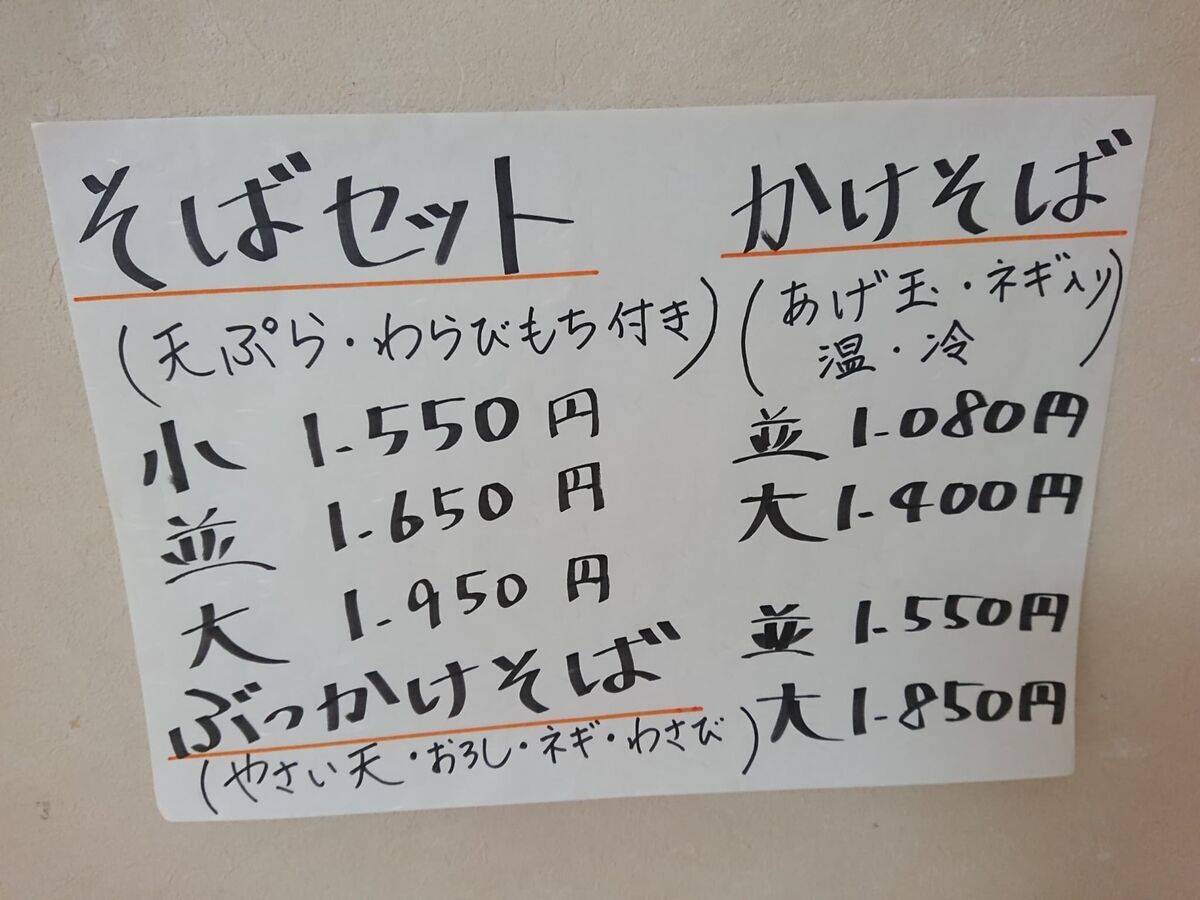 そばセット
(天ぷら・わらびもち付き)
小 1.550円
並 1.650円
大 1.950円
かけそば
(あげ玉・ネギ入り
温・冷)
並 1.080円
大 1.400円
ぶっかけそば
(やさい天・おろし・ネギ・わさび)
並 1.550円
大 1.850円